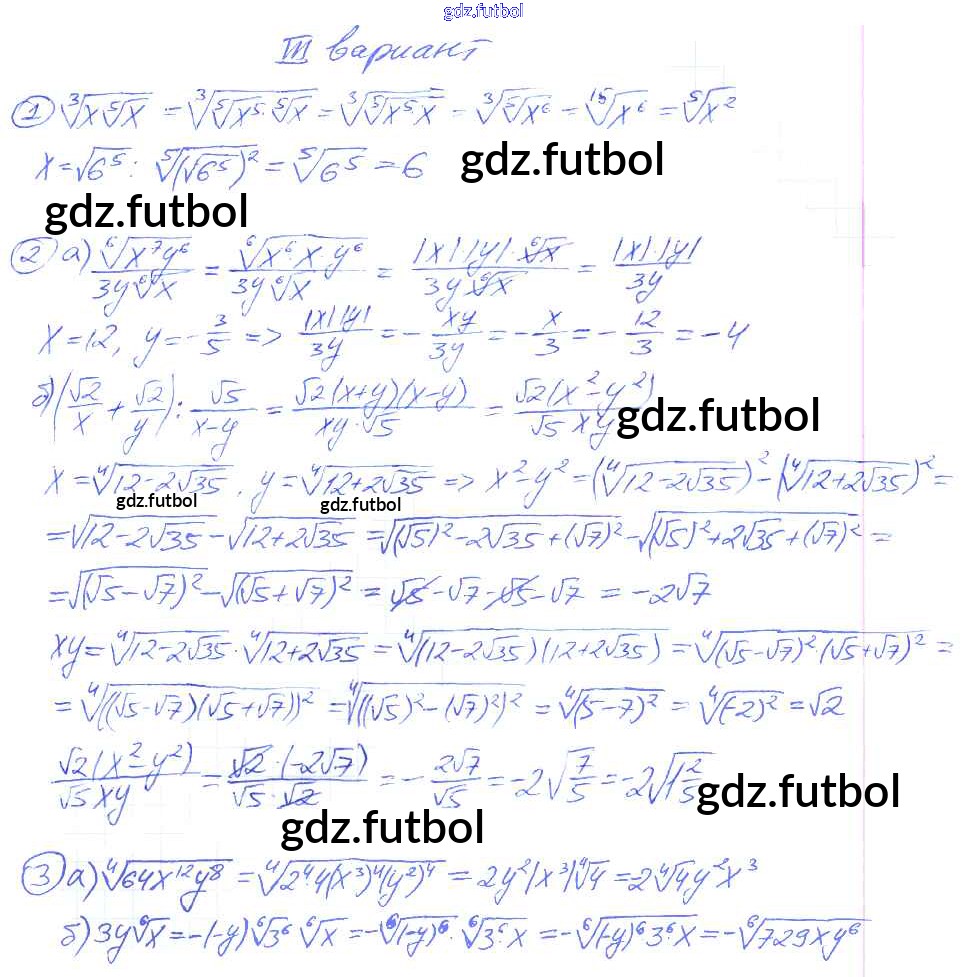 gdz.futbol
III вариант
① ∛(x⁵√x) = ∛(⁵√(x⁵·⁵√x)) = ∛(⁵√(x⁵·x)) = ∛(⁵√x⁶) = ¹⁵√x⁶ = ⁵√x²
x = √6⁵ : ⁵√((√6⁵)²) = ⁵√6⁵ = 6 gdz.futbol
gdz.futbol
② а) ⁶√(x⁷y⁶)/(3y ⁶√x) = ⁶√(x⁶·x·y⁶)/(3y ⁶√x) = |x|·|y|·⁶√x/(3y ⁶√x) = |x|·|y|/3y
x = 12, y = -3/5 => |x||y|/3y = - xy/3y = - x/3 = - 12/3 = -4
б) (√2/x + √2/y) : √5/(x-y) = √2(x+y)(x-y)/(xy·√5) = √2(x²-y²)/(√5 xy) gdz.futbol
x = ⁴√(12-2√35), y = ⁴√(12+2√35) => x²-y² = (⁴√(12-2√35))² - (⁴√(12+2√35))² =
gdz.futbol gdz.futbol
= √(12-2√35) - √(12+2√35) = √((√5)²-2√35+(√7)²) - √((√5)²+2√35+(√7)²) =
= √((√5-√7)²) - √((√5+√7)²) = √5 - √7 - √5 - √7 = -2√7
xy = ⁴√(12-2√35) · ⁴√(12+2√35) = ⁴√((12-2√35)(12+2√35)) = ⁴√((√5-√7)²·(√5+√7)²) =
= ⁴√(((√5-√7)(√5+√7))²) = ⁴√(((√5)²-(√7)²)²) = ⁴√((5-7)²) = ⁴√((-2)²) = √2
√2(x²-y²)/(√5 xy) = √2·(-2√7)/(√5·√2) = - 2√7/√5 = -2√(7/5) = -2√(1 2/5) gdz.futbol
gdz.futbol
③ а) ⁴√(64x¹²y⁸) = ⁴√(2⁴·4(x³)⁴(y²)⁴) = 2y²|x³|⁴√4 = 2⁴√4 y²x³
б) 3y ⁶√x = -(-y) ⁶√3⁶ ⁶√x = -⁶√((-y)⁶) · ⁶√(3⁶·x) = -⁶√((-y)⁶3⁶·x) = -⁶√(729xy⁶)